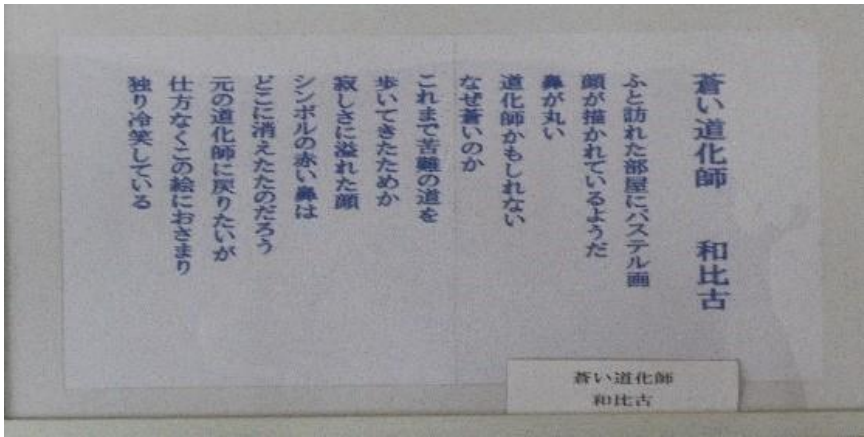 蒼い道化師　和比古
ふと訪れた部屋にパステル画
顔が描かれているようだ
鼻が丸い
道化師かもしれない
なぜ蒼いのか
これまで苦難の道を
歩いてきたためか
寂しさに溢れた顔
シンボルの赤い鼻は
どこに消えたたのだろう
元の道化師に戻りたいが
仕方なくこの絵におさまり
独り冷笑している
蒼い道化師
和比古